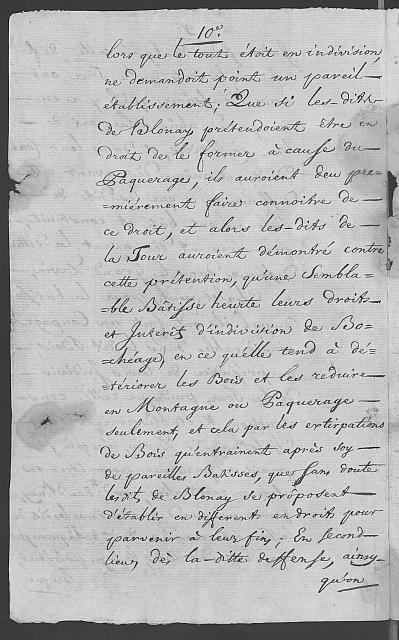 10.º
lors que le tout étoit en indivision,
ne demandoit point un pareil
établissement; Que si les-dits
de Blonay prétendoient être en
droit de le former à cause du
Paquerage, ils auroient deu pre=
=miérement faire connoitre de
ce droit, et alors les-dits de
la Tour auroient démontré contre
cette prétention, qu'une Sembla=
=ble Bâtisse heurte leurs droits
et Interêts d'indivision de Bo=
=chéage, en ce qu'elle tend à dé=
=tériorer les Bois et les reduire
en Montagne ou Paquerage
seulement, et cela par les extirpations
de Bois qu'entrainent après soy
de pareilles Batisses, que sans doute
lesdits de Blonay se proposent
d'établir en different endroits pour
parvenir à leur fins; En second
lieu, dès la-ditte deffense, ainsy
qu'on